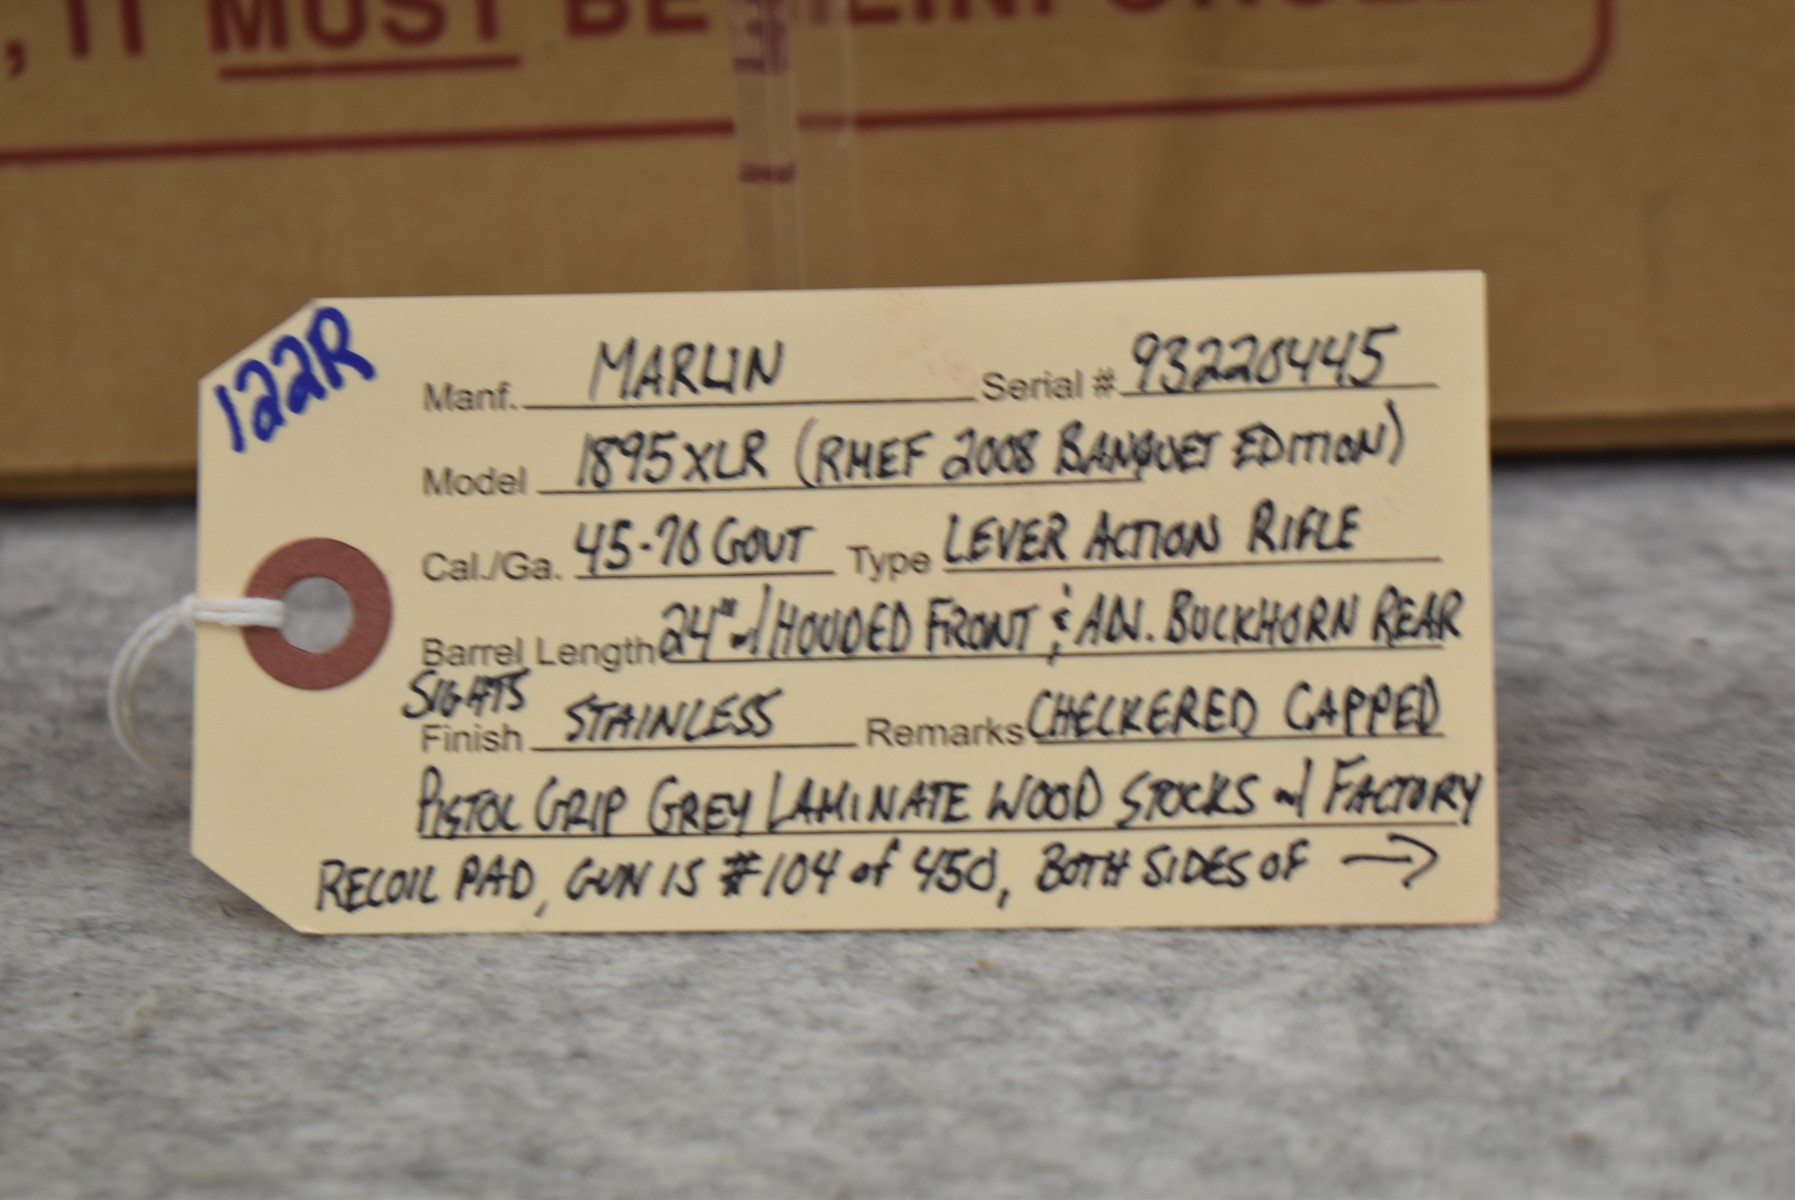 , IT MUST BE REINFORCED
122R
Manf. MARLIN Serial # 93220445
Model 1895XLR (RMEF 2008 BANQUET EDITION)
Cal./Ga. 45-70 GOVT Type LEVER ACTION RIFLE
Barrel Length 24" w/ HOODED FRONT & ADJ. BUCKHORN REAR
SIGHTS
Finish STAINLESS Remarks CHECKERED CAPPED
PISTOL GRIP GREY LAMINATE WOOD STOCKS w/ FACTORY
RECOIL PAD, GUN IS #104 of 450, BOTH SIDES OF →